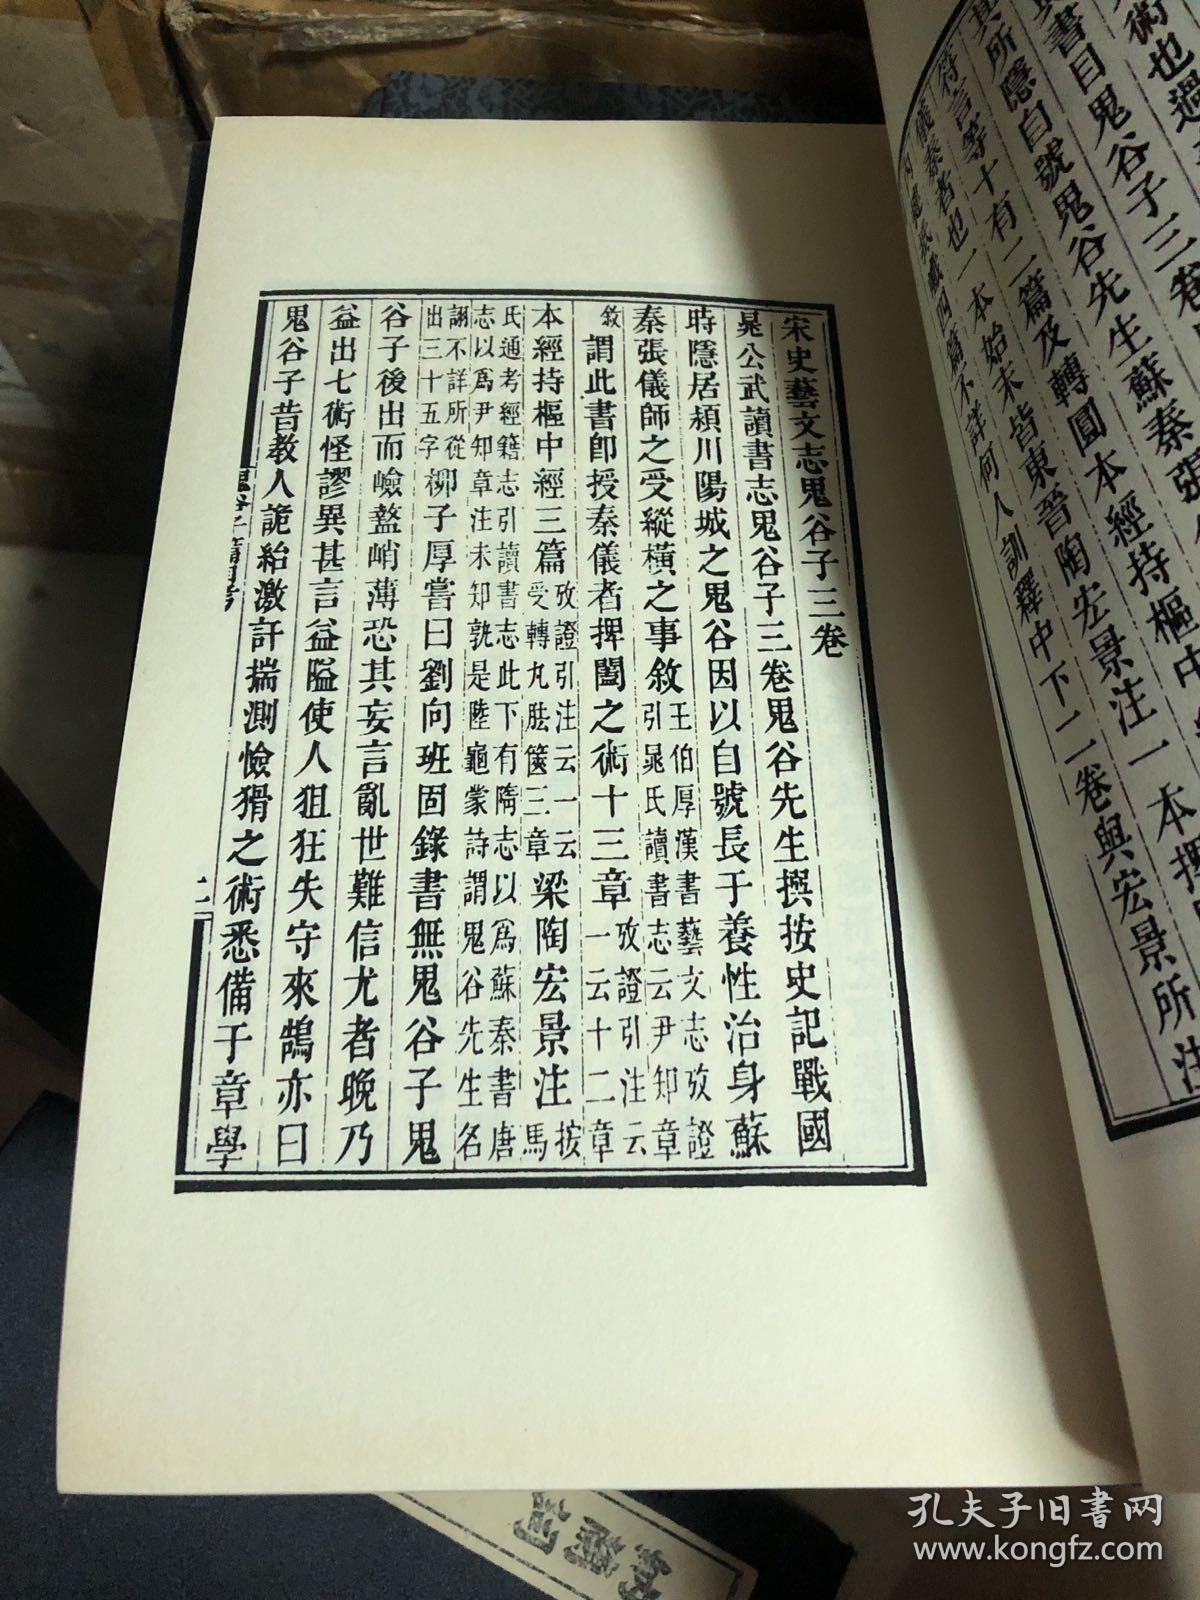 術也過
書目鬼谷子三卷
其所隱自號鬼谷先生蘇秦張
符言等十有二篇及轉圓本經持樞中
儀秦者也一本始末皆東晉陶宏景注一本捭
內揵抵巇四篇不詳何人訓釋中下二卷與宏景所注
宋史藝文志鬼谷子三卷
晁公武讀書志鬼谷子三卷鬼谷先生撰按史記戰國
時隱居潁川陽城之鬼谷因以自號長于養性治身蘇
秦張儀師之受縱橫之事敘王伯厚漢書藝文志攷證
引晁氏讀書志云尹知章
敘謂此書即授秦儀者捭闔之術十三章攷證引注云
一云十二章
本經持樞中經三篇攷證引注云一云
受轉丸胠篋三章梁陶宏景注按
馬
氏通考經籍志引讀書志此下有隋志以爲蘇秦書唐
志以爲尹知章注未知孰是陸龜蒙詩謂鬼谷先生名
詡不詳所從
出三十五字柳子厚嘗曰劉向班固錄書無鬼谷子鬼
谷子後出而嶮盭峭薄恐其妄言亂世難信尤者晚乃
益出七術怪謬異甚言益隘使人狙狂失守來鵠亦曰
鬼谷子昔教人詭紿激訐揣測憸猾之術悉備于章學
鬼谷子篇目考
二
孔夫子旧书网
www.kongfz.com